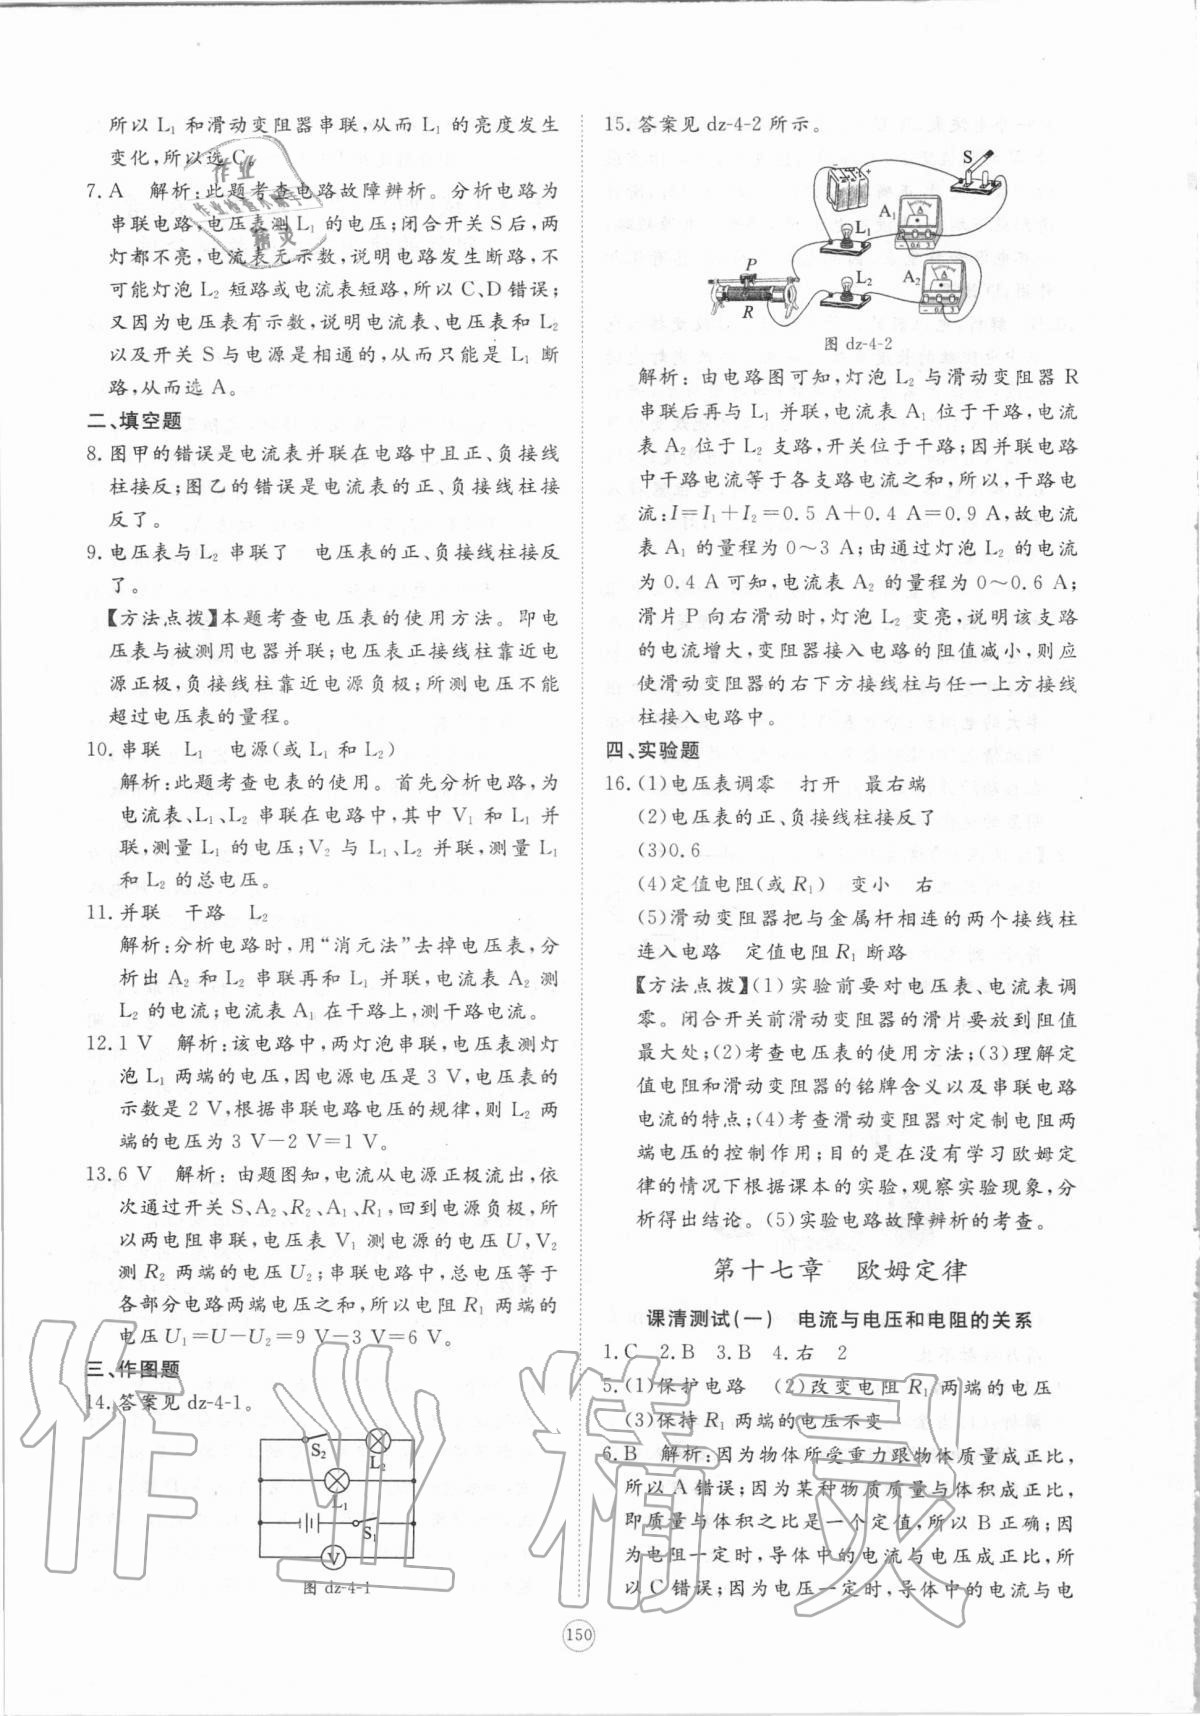 所以 L₁ 和滑动变阻器串联,从而 L₁ 的亮度发生
变化,所以选 C。
7. A 解析:此题考查电路故障辨析。分析电路为
串联电路,电压表测 L₁ 的电压;闭合开关 S 后,两
灯都不亮,电流表无示数,说明电路发生断路,不
可能灯泡 L₂ 短路或电流表短路,所以 C、D 错误;
又因为电压表有示数,说明电流表、电压表和 L₂
以及开关 S 与电源是相通的,从而只能是 L₁ 断
路,从而选 A。
二、填空题
8. 图甲的错误是电流表并联在电路中且正、负接线
柱接反;图乙的错误是电流表的正、负接线柱接
反了。
9. 电压表与 L₂ 串联了 电压表的正、负接线柱接反
了。
【方法点拨】本题考查电压表的使用方法。即电
压表与被测用电器并联;电压表正接线柱靠近电
源正极,负接线柱靠近电源负极;所测电压不能
超过电压表的量程。
10. 串联 L₁ 电源(或 L₁ 和 L₂)
解析:此题考查电表的使用。首先分析电路,为
电流表、L₁、L₂ 串联在电路中,其中 V₁ 和 L₁ 并
联,测量 L₁ 的电压;V₂ 与 L₁、L₂ 并联,测量 L₁
和 L₂ 的总电压。
11. 并联 干路 L₂
解析:分析电路时,用“消元法”去掉电压表,分
析出 A₂ 和 L₂ 串联再和 L₁ 并联,电流表 A₂ 测
L₂ 的电流;电流表 A₁ 在干路上,测干路电流。
12. 1 V 解析:该电路中,两灯泡串联,电压表测灯
泡 L₁ 两端的电压,因电源电压是 3 V,电压表的
示数是 2 V,根据串联电路电压的规律,则 L₂ 两
端的电压为 3 V−2 V=1 V。
13. 6 V 解析:由题图知,电流从电源正极流出,依
次通过开关 S、A₂、R₂、A₁、R₁,回到电源负极,所
以两电阻串联,电压表 V₁ 测电源的电压 U,V₂
测 R₂ 两端的电压 U₂;串联电路中,总电压等于
各部分电路两端电压之和,所以电阻 R₁ 两端的
电压 U₁=U−U₂=9 V−3 V=6 V。
三、作图题
14. 答案见 dz-4-1。
S₂
L₂
L₁
S₁
V
图 dz-4-1
15. 答案见 dz-4-2 所示。
S
A₁
L₁
A₂
L₂
P
R
图 dz-4-2
解析:由电路图可知,灯泡 L₂ 与滑动变阻器 R
串联后再与 L₁ 并联,电流表 A₁ 位于干路,电流
表 A₂ 位于 L₂ 支路,开关位于干路;因并联电路
中干路电流等于各支路电流之和,所以,干路电
流:I=I₁+I₂=0.5 A+0.4 A=0.9 A,故电流
表 A₁ 的量程为 0～3 A;由通过灯泡 L₂ 的电流
为 0.4 A 可知,电流表 A₂ 的量程为 0～0.6 A;
滑片 P 向右滑动时,灯泡 L₂ 变亮,说明该支路
的电流增大,变阻器接入电路的阻值减小,则应
使滑动变阻器的右下方接线柱与任一上方接线
柱接入电路中。
四、实验题
16. (1)电压表调零 打开 最右端
(2)电压表的正、负接线柱接反了
(3)0.6
(4)定值电阻(或 R₁) 变小 右
(5)滑动变阻器把与金属杆相连的两个接线柱
连入电路 定值电阻 R₁ 断路
【方法点拨】(1)实验前要对电压表、电流表调
零。闭合开关前滑动变阻器的滑片要放到阻值
最大处;(2)考查电压表的使用方法;(3)理解定
值电阻和滑动变阻器的铭牌含义以及串联电路
电流的特点;(4)考查滑动变阻器对定制电阻两
端电压的控制作用;目的是在没有学习欧姆定
律的情况下根据课本的实验,观察实验现象,分
析得出结论。(5)实验电路故障辨析的考查。
第十七章 欧姆定律
课清测试(一) 电流与电压和电阻的关系
1. C 2. B 3. B 4. 右 2
5. (1)保护电路 (2)改变电阻 R₁ 两端的电压
(3)保持 R₁ 两端的电压不变
6. B 解析:因为物体所受重力跟物体质量成正比,
所以 A 错误;因为某种物质质量与体积成正比,
即质量与体积之比是一个定值,所以 B 正确;因
为电阻一定时,导体中的电流与电压成正比,所
以 C 错误;因为电压一定时,导体中的电流与电
150
作业精灵